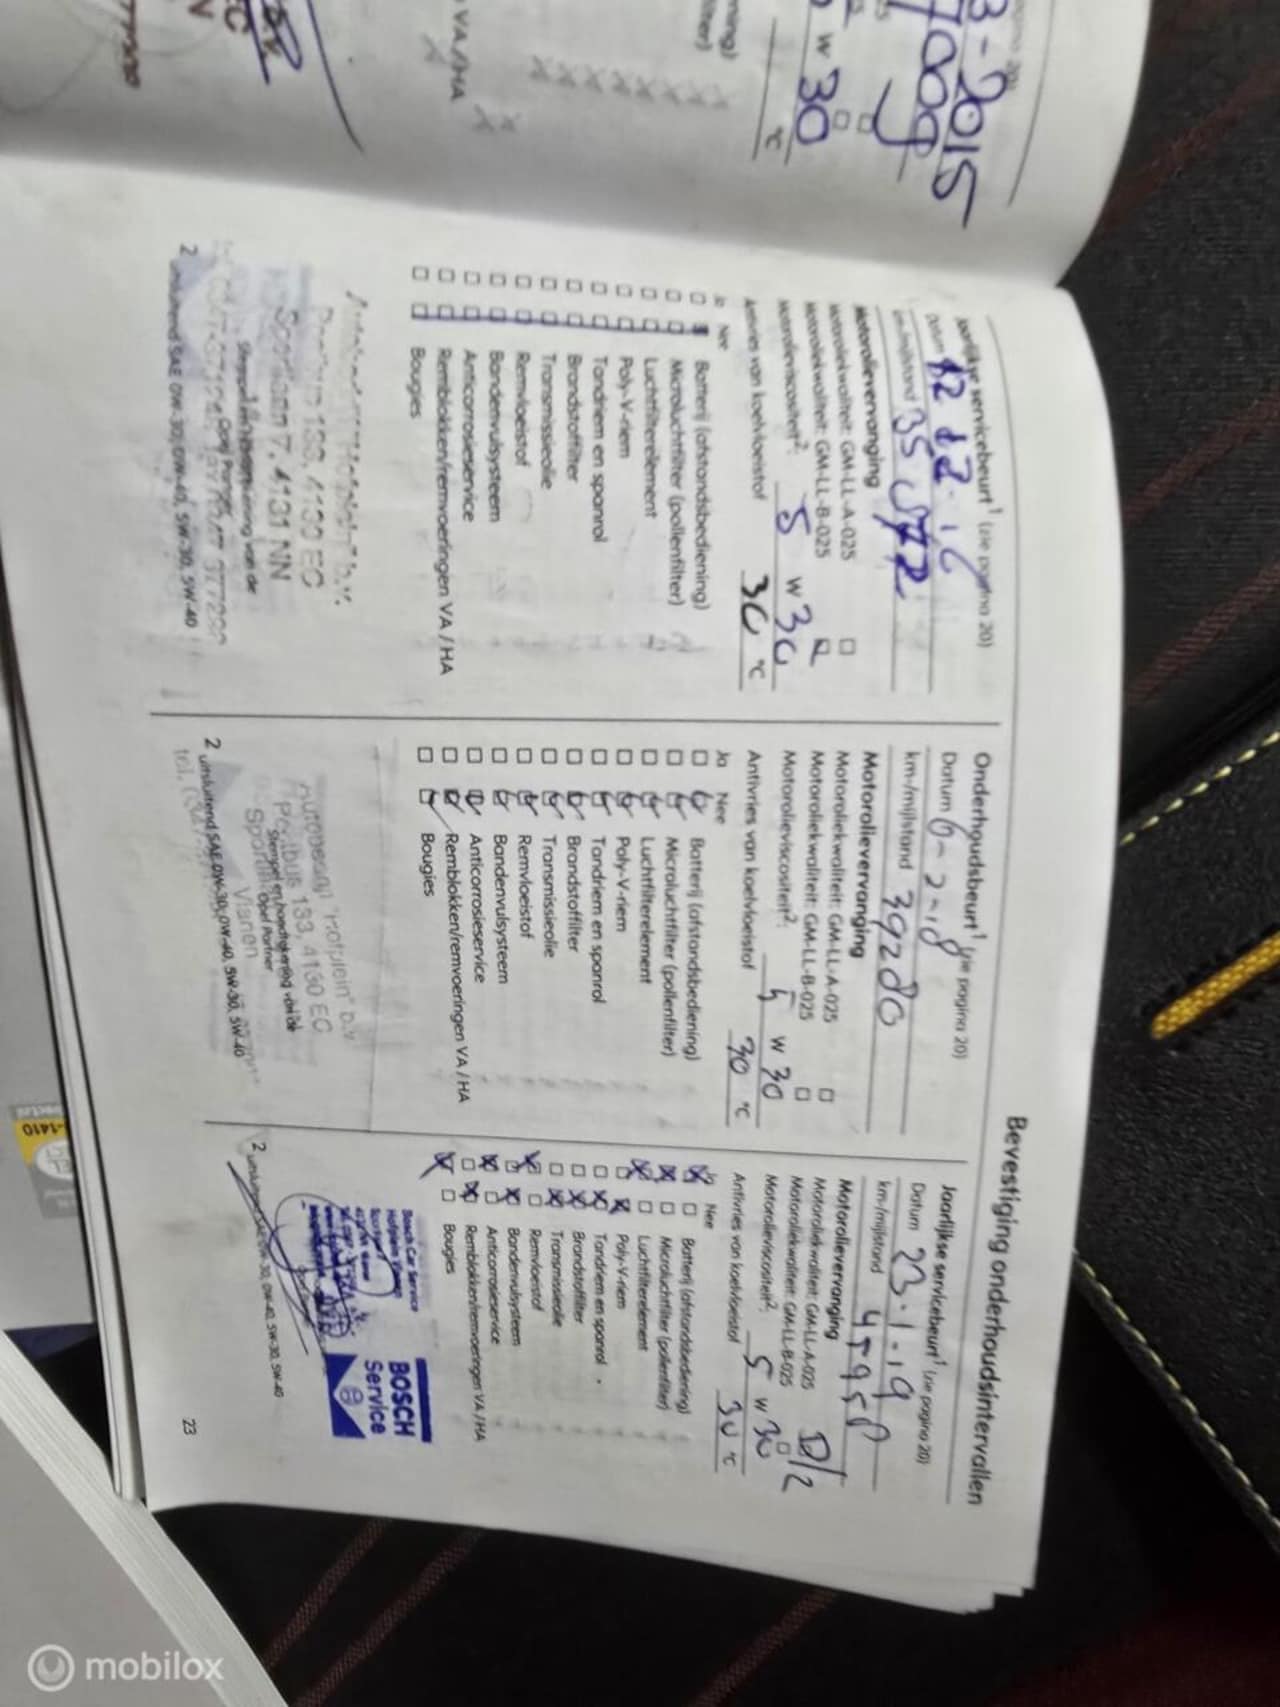 3-2015
7000
W 30
°C
VA/HA
Bevestiging onderhoudsintervallen
Jaarlijkse servicebeurt¹ (zie pagina 20)
Datum 12 12.16
km-/mijlstand
Motorolievervanging
Motoroliekwaliteit: GM-LL-A-025
Motoroliekwaliteit: GM-LL-B-025
Motorolieviscositeit²: 5 W 30
Antivries van koelvloeistof 30 °C
Ja Nee
Batterij (afstandsbediening)
Microluchtfilter (pollenfilter)
Luchtfilterelement
Poly-V-riem
Tandriem en spanrol
Brandstoffilter
Transmissieolie
Remvloeistof
Bandenvulsysteem
Anticorrosieservice
Remblokken/remvoeringen VA / HA
Bougies
133, 4130 EC
7, 4131 NN
2 uitsluitend SAE 0W-30, 0W-40, 5W-30, 5W-40
Onderhoudsbeurt¹ (zie pagina 20)
Datum 6-2-18
km-/mijlstand 39280
Motorolievervanging
Motoroliekwaliteit: GM-LL-A-025
Motoroliekwaliteit: GM-LL-B-025
Motorolieviscositeit²: 5 W 30
Antivries van koelvloeistof 30 °C
Ja Nee
Batterij (afstandsbediening)
Microluchtfilter (pollenfilter)
Luchtfilterelement
Poly-V-riem
Tandriem en spanrol
Brandstoffilter
Transmissieolie
Remvloeistof
Bandenvulsysteem
Anticorrosieservice
Remblokken/remvoeringen VA / HA
Bougies
"Hofplein" b.v.
133, 4130 EC
Stempel en handtekening van de
Opel Partner
Vianen
tel.
2 uitsluitend SAE 0W-30, 0W-40, 5W-30, 5W-40
Jaarlijkse servicebeurt¹ (zie pagina 20)
Datum 23.1.19
km-/mijlstand
Motorolievervanging
Motoroliekwaliteit: GM-LL-A-025
Motoroliekwaliteit: GM-LL-B-025
Motorolieviscositeit²: 5 W 30
Antivries van koelvloeistof 30 °C
Ja Nee
Batterij (afstandsbediening)
Microluchtfilter (pollenfilter)
Luchtfilterelement
Poly-V-riem
Tandriem en spanrol
Brandstoffilter
Transmissieolie
Remvloeistof
Bandenvulsysteem
Anticorrosieservice
Remblokken/remvoeringen VA / HA
Bougies
Bosch Car Service
Hofplein Vianen
BOSCH
Service
2 uitsluitend SAE 0W-30, 0W-40, 5W-30, 5W-40
23
-1410
mobilox